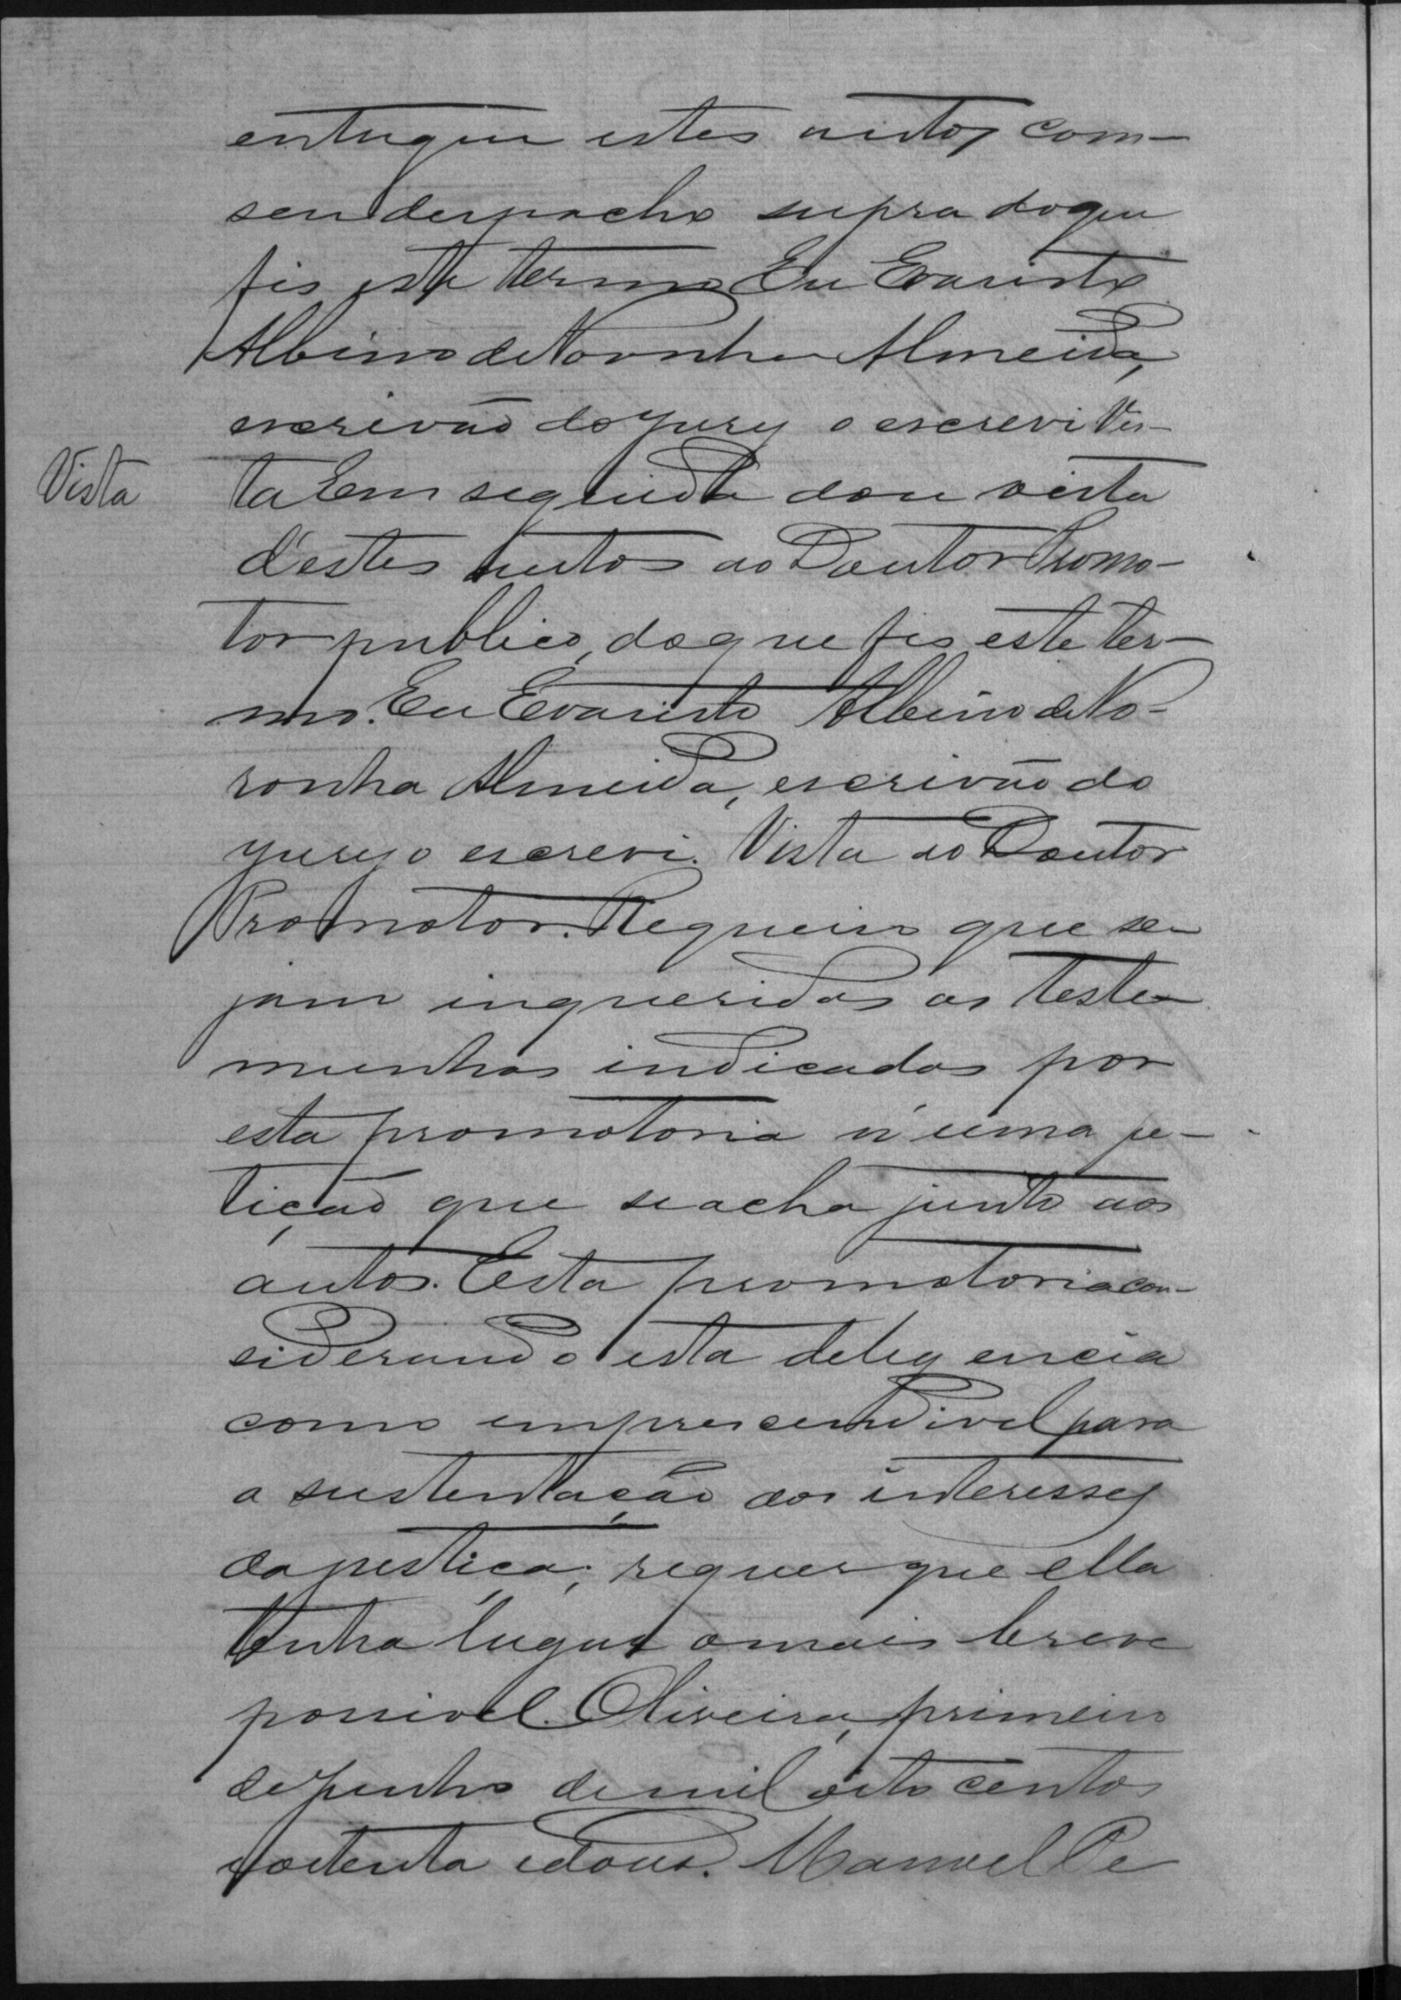 entregue estes autos com-
seu despacho supra do que
fis este termo Eu Evaristo
Albino de Noronha Almeida,
escrivão do jury o escrevi Vis-
Vista
ta Em seguida dou vista
d'estes autos ao Doutor Promo-
tor publico, do que fis este ter-
mo. Eu Evaristo Albino de No-
ronha Almeida, escrivão do
jury o escrevi. Vista ao Doutor
Promotor. Requeiro que se-
jam inqueridas as teste-
munhas indicadas por
esta promotoria n'uma pe-
tição que se acha junto aos
autos. Esta promotoria con-
siderando esta deligencia
como imprescendivel para
a sustentação dos interesses
da justiça; requer que ella
tenha lugar o mais breve
possivel. Oliveira, primeiro
de junho de mil oito centos
e oitenta e dous. Manoel Pe